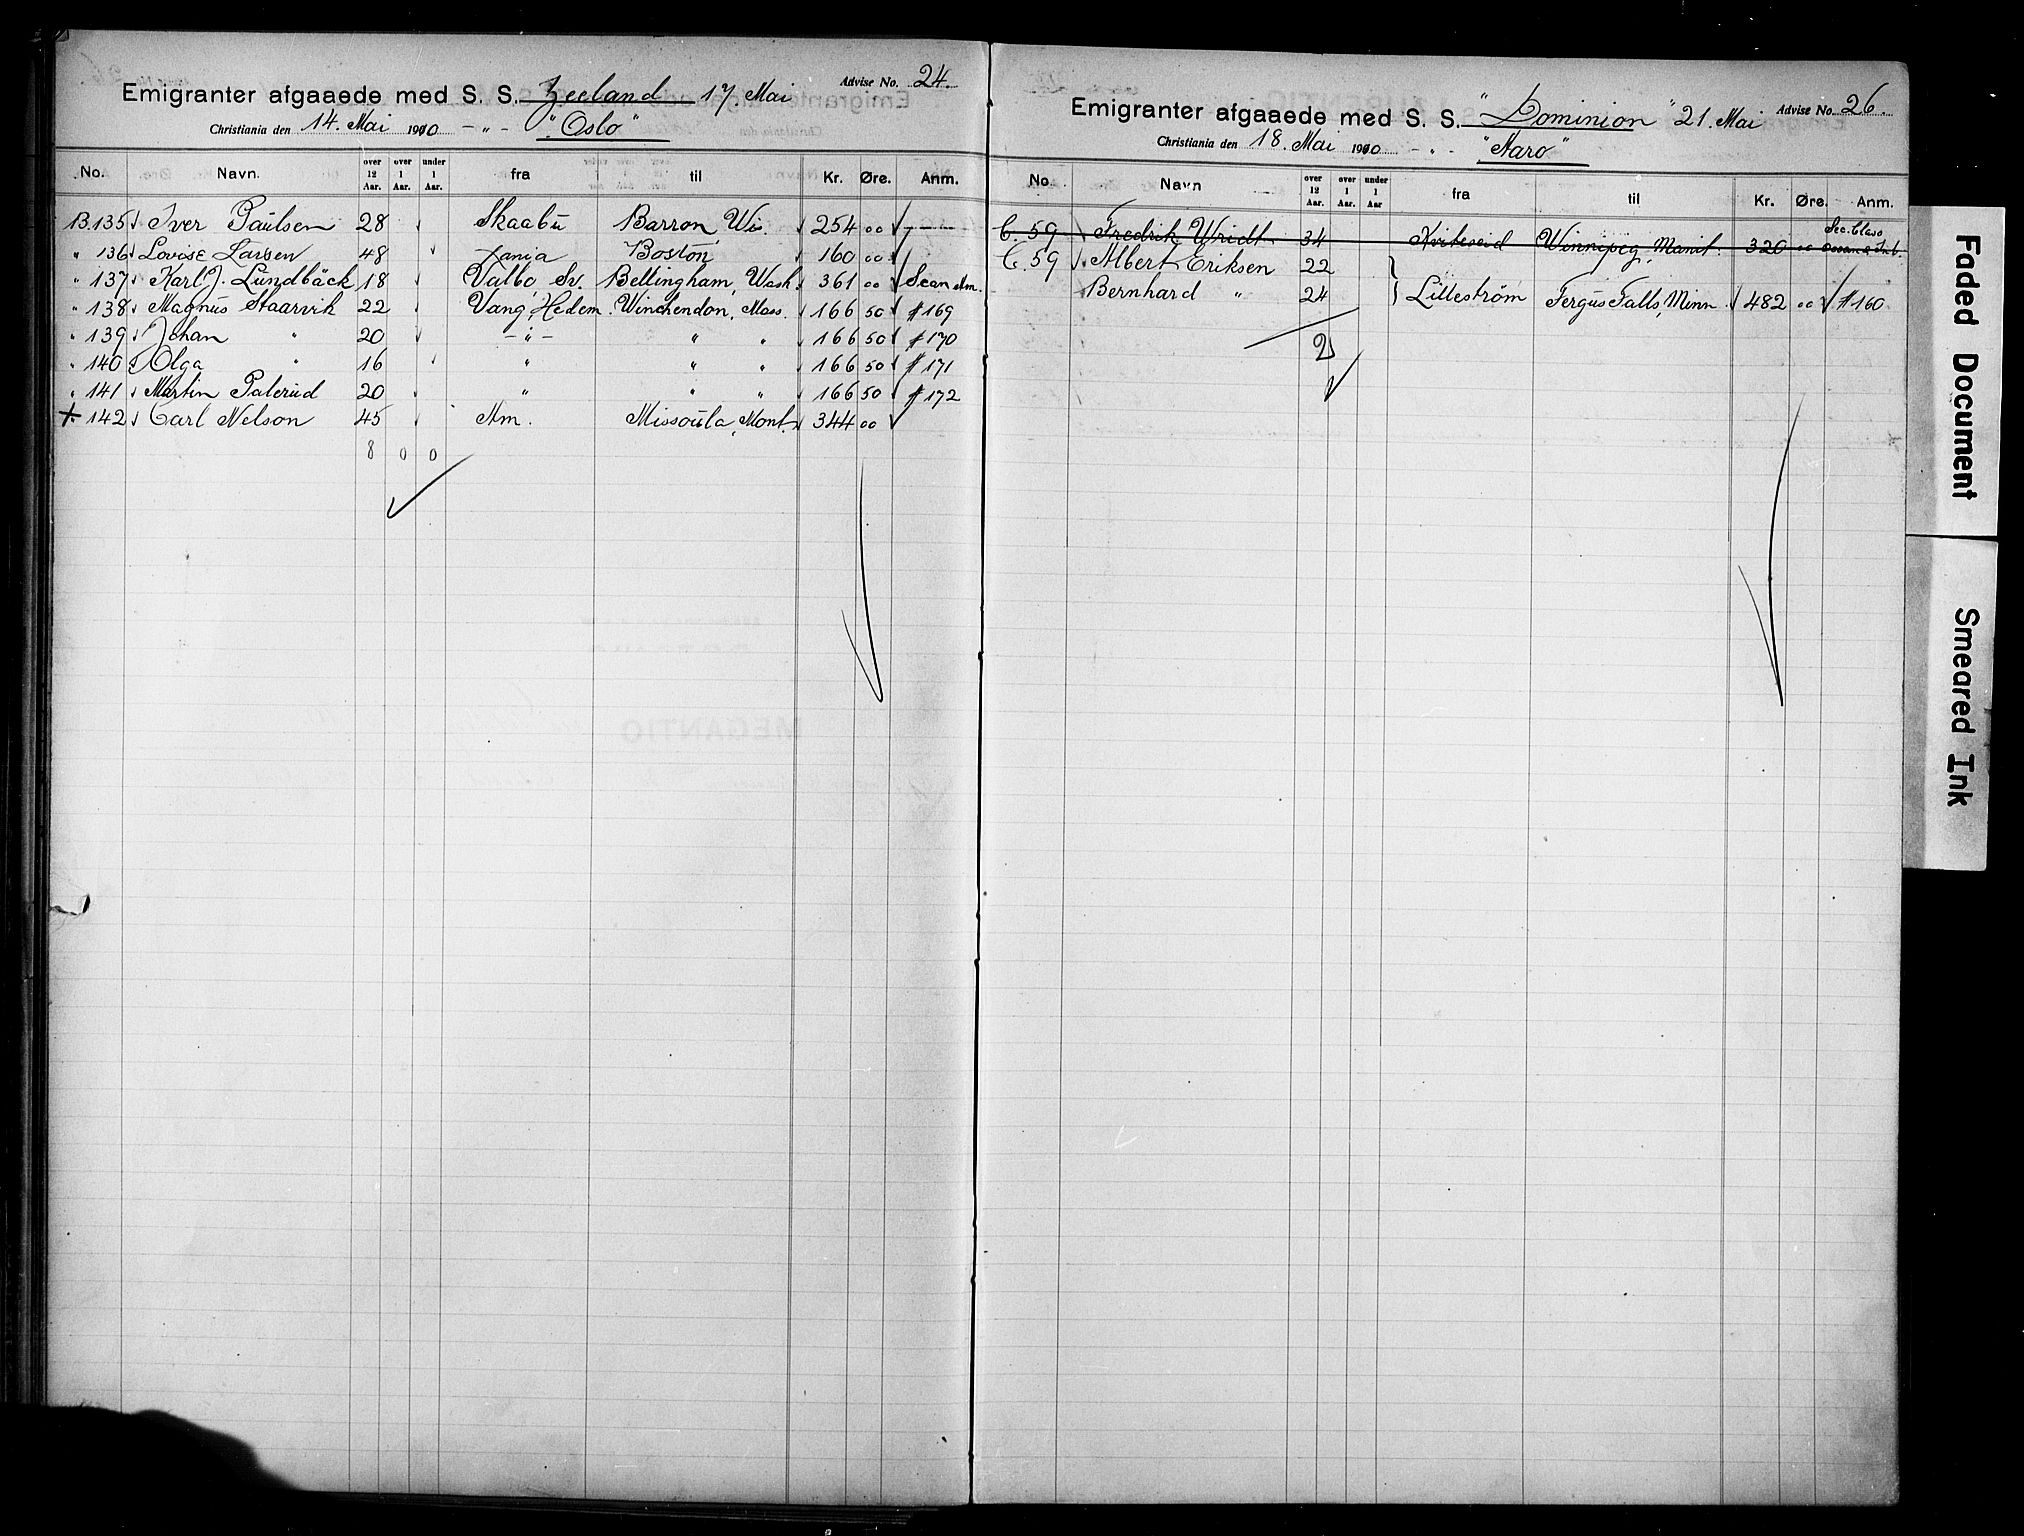 Advise No. 24.
Emigranter afgaaede med S. S. Zeeland 17. Mai
Christiania den 14. Mai 1910 - " - "Oslo"
No. Navn. over 12 Aar. over 1 Aar. under 1 Aar. fra til Kr. Øre. Anm.
B. 135 Iver Paulsen 28 Skaabu Barron Wis. 254 00
" 136 Lovise Larsen 48 Xania Boston 160 00
" 137 Karl J. Lundbäck 18 Valbo Sv. Bellingham, Wash. 361 00 Scan Am.
" 138 Magnus Staarvik 22 Vang, Hedem. Winchendon, Mass. 166 50 # 169
" 139 Johan " 20 - " - " " 166 50 # 170
" 140 Olga " 16 " " " 166 50 # 171
" 141 Martin Palerud 20 " " " 166 50 # 172
+ 142 Carl Nelson 45 Am. Missoula, Mont. 344 00
8 0 0
Advise No. 26.
Emigranter afgaaede med S. S. "Dominion" 21. Mai
Christiania den 18. Mai 1910 - " - "Aaro"
No. Navn over 12 Aar. over 1 Aar. under 1 Aar fra til Kr. Øre. Anm.
Sec. Class
C. 59 Fredrik Wridt 34 Kviteseid Winnipeg, Manit. 320 00 Ocean & Inl.
C. 59 Albert Eriksen 22
Bernhard " 24 Lillestrøm Fergus Falls, Minn. 482 00 # 160
2
MEGANTIC
Faded Document
Smeared Ink